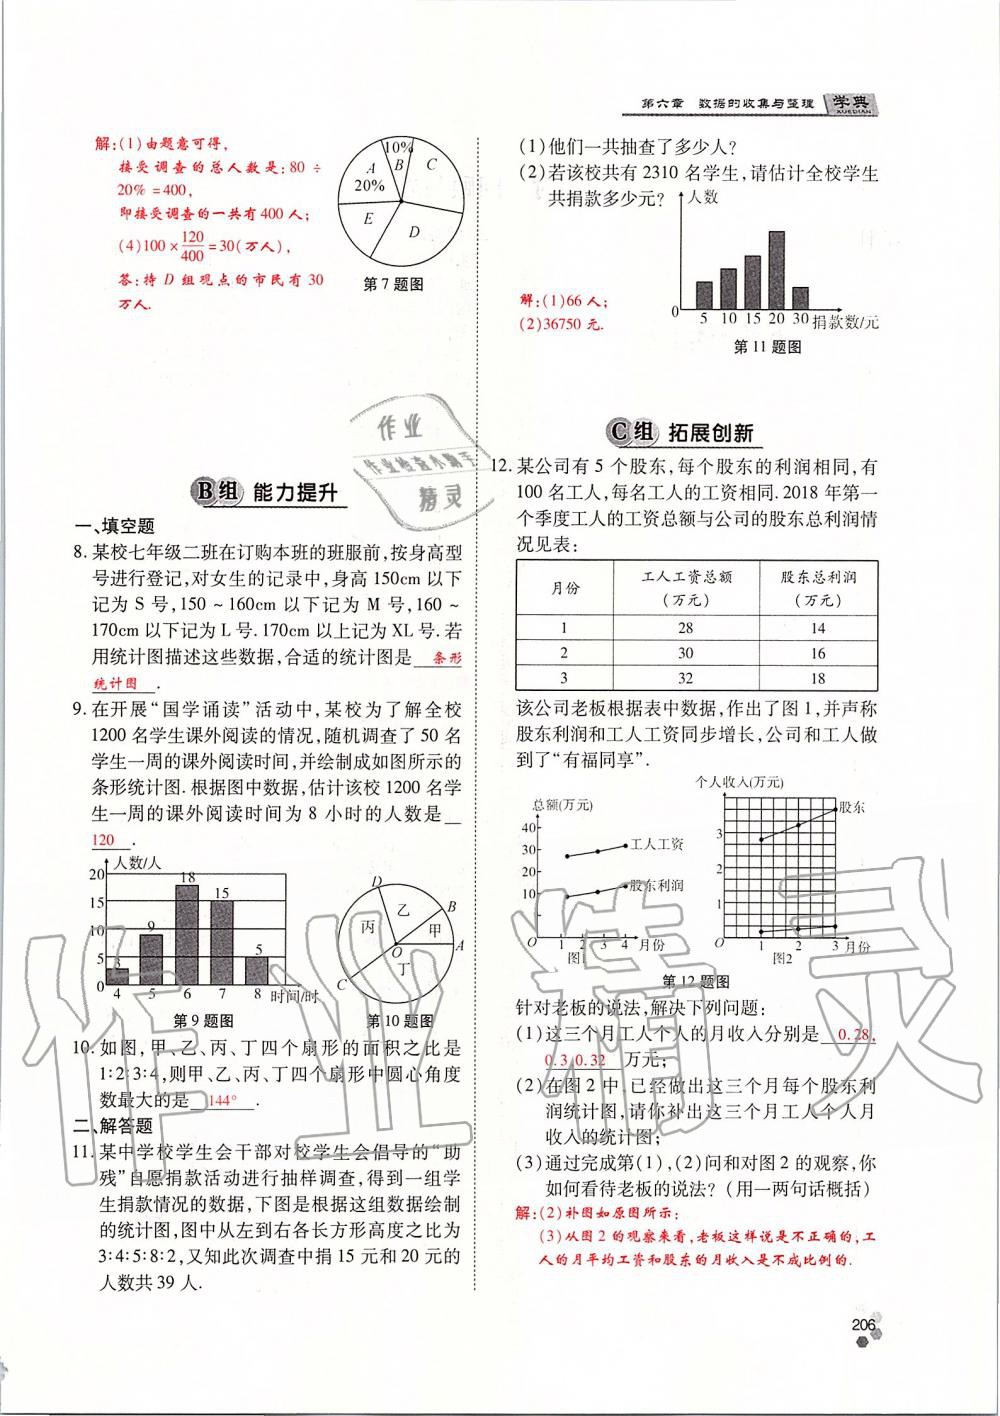 第六章 数据的收集与整理 学典
XUEDIAN
解:(1)由题意可得,
接受调查的总人数是:80 ÷
20% = 400,
即接受调查的一共有400人;
(4)100 × 120/400 = 30(万人),
答:持 D 组观点的市民有 30
万人.
A
20%
10%
B
C
D
E
第7题图
B组 能力提升
一、填空题
8. 某校七年级二班在订购本班的班服前,按身高型
号进行登记,对女生的记录中,身高 150cm 以下
记为 S 号,150 ~ 160cm 以下记为 M 号,160 ~
170cm 以下记为 L 号.170cm 以上记为 XL 号.若
用统计图描述这些数据,合适的统计图是 条形
统计图 .
9. 在开展“国学诵读”活动中,某校为了解全校
1200 名学生课外阅读的情况,随机调查了 50 名
学生一周的课外阅读时间,并绘制成如图所示的
条形统计图.根据图中数据,估计该校 1200 名学
生一周的课外阅读时间为 8 小时的人数是
120 .
人数/人
20
15
10
5
0
3
9
18
15
5
4 5 6 7 8 时间/时
第9题图
D
B
A
C
O
乙
甲
丙
丁
第10题图
10. 如图,甲、乙、丙、丁四个扇形的面积之比是
1:2:3:4,则甲、乙、丙、丁四个扇形中圆心角度
数最大的是 144° .
二、解答题
11. 某中学校学生会干部对校学生会倡导的“助
残”自愿捐款活动进行抽样调查,得到一组学
生捐款情况的数据,下图是根据这组数据绘制
的统计图,图中从左到右各长方形高度之比为
3:4:5:8:2,又知此次调查中捐 15 元和 20 元的
人数共 39 人.
(1)他们一共抽查了多少人?
(2)若该校共有 2310 名学生,请估计全校学生
共捐款多少元?
人数
0
5 10 15 20 30 捐款数/元
第11题图
解:(1)66 人;
(2)36750 元.
C组 拓展创新
12. 某公司有 5 个股东,每个股东的利润相同,有
100 名工人,每名工人的工资相同.2018 年第一
个季度工人的工资总额与公司的股东总利润情
况见表:
月份 工人工资总额(万元) 股东总利润(万元)
1 28 14
2 30 16
3 32 18
该公司老板根据表中数据,作出了图 1,并声称
股东利润和工人工资同步增长,公司和工人做
到了“有福同享”.
总额(万元)
40
30
20
10
O
工人工资
股东利润
1 2 3 4 月份
图1
个人收入(万元)
3
2
1
O
股东
1 2 3 月份
图2
第12题图
针对老板的说法,解决下列问题:
(1)这三个月工人个人的月收入分别是 0.28,
0.3 0.32 万元;
(2)在图 2 中,已经做出这三个月每个股东利
润统计图,请你补出这三个月工人个人月
收入的统计图;
(3)通过完成第(1),(2)问和对图 2 的观察,你
如何看待老板的说法?(用一两句话概括)
解:(2)补图如原图所示:
(3)从图 2 的观察来看,老板这样说是不正确的,工
人的月平均工资和股东的月收入是不成比例的.
206
作业
作业检查小助手
精灵
作业精灵